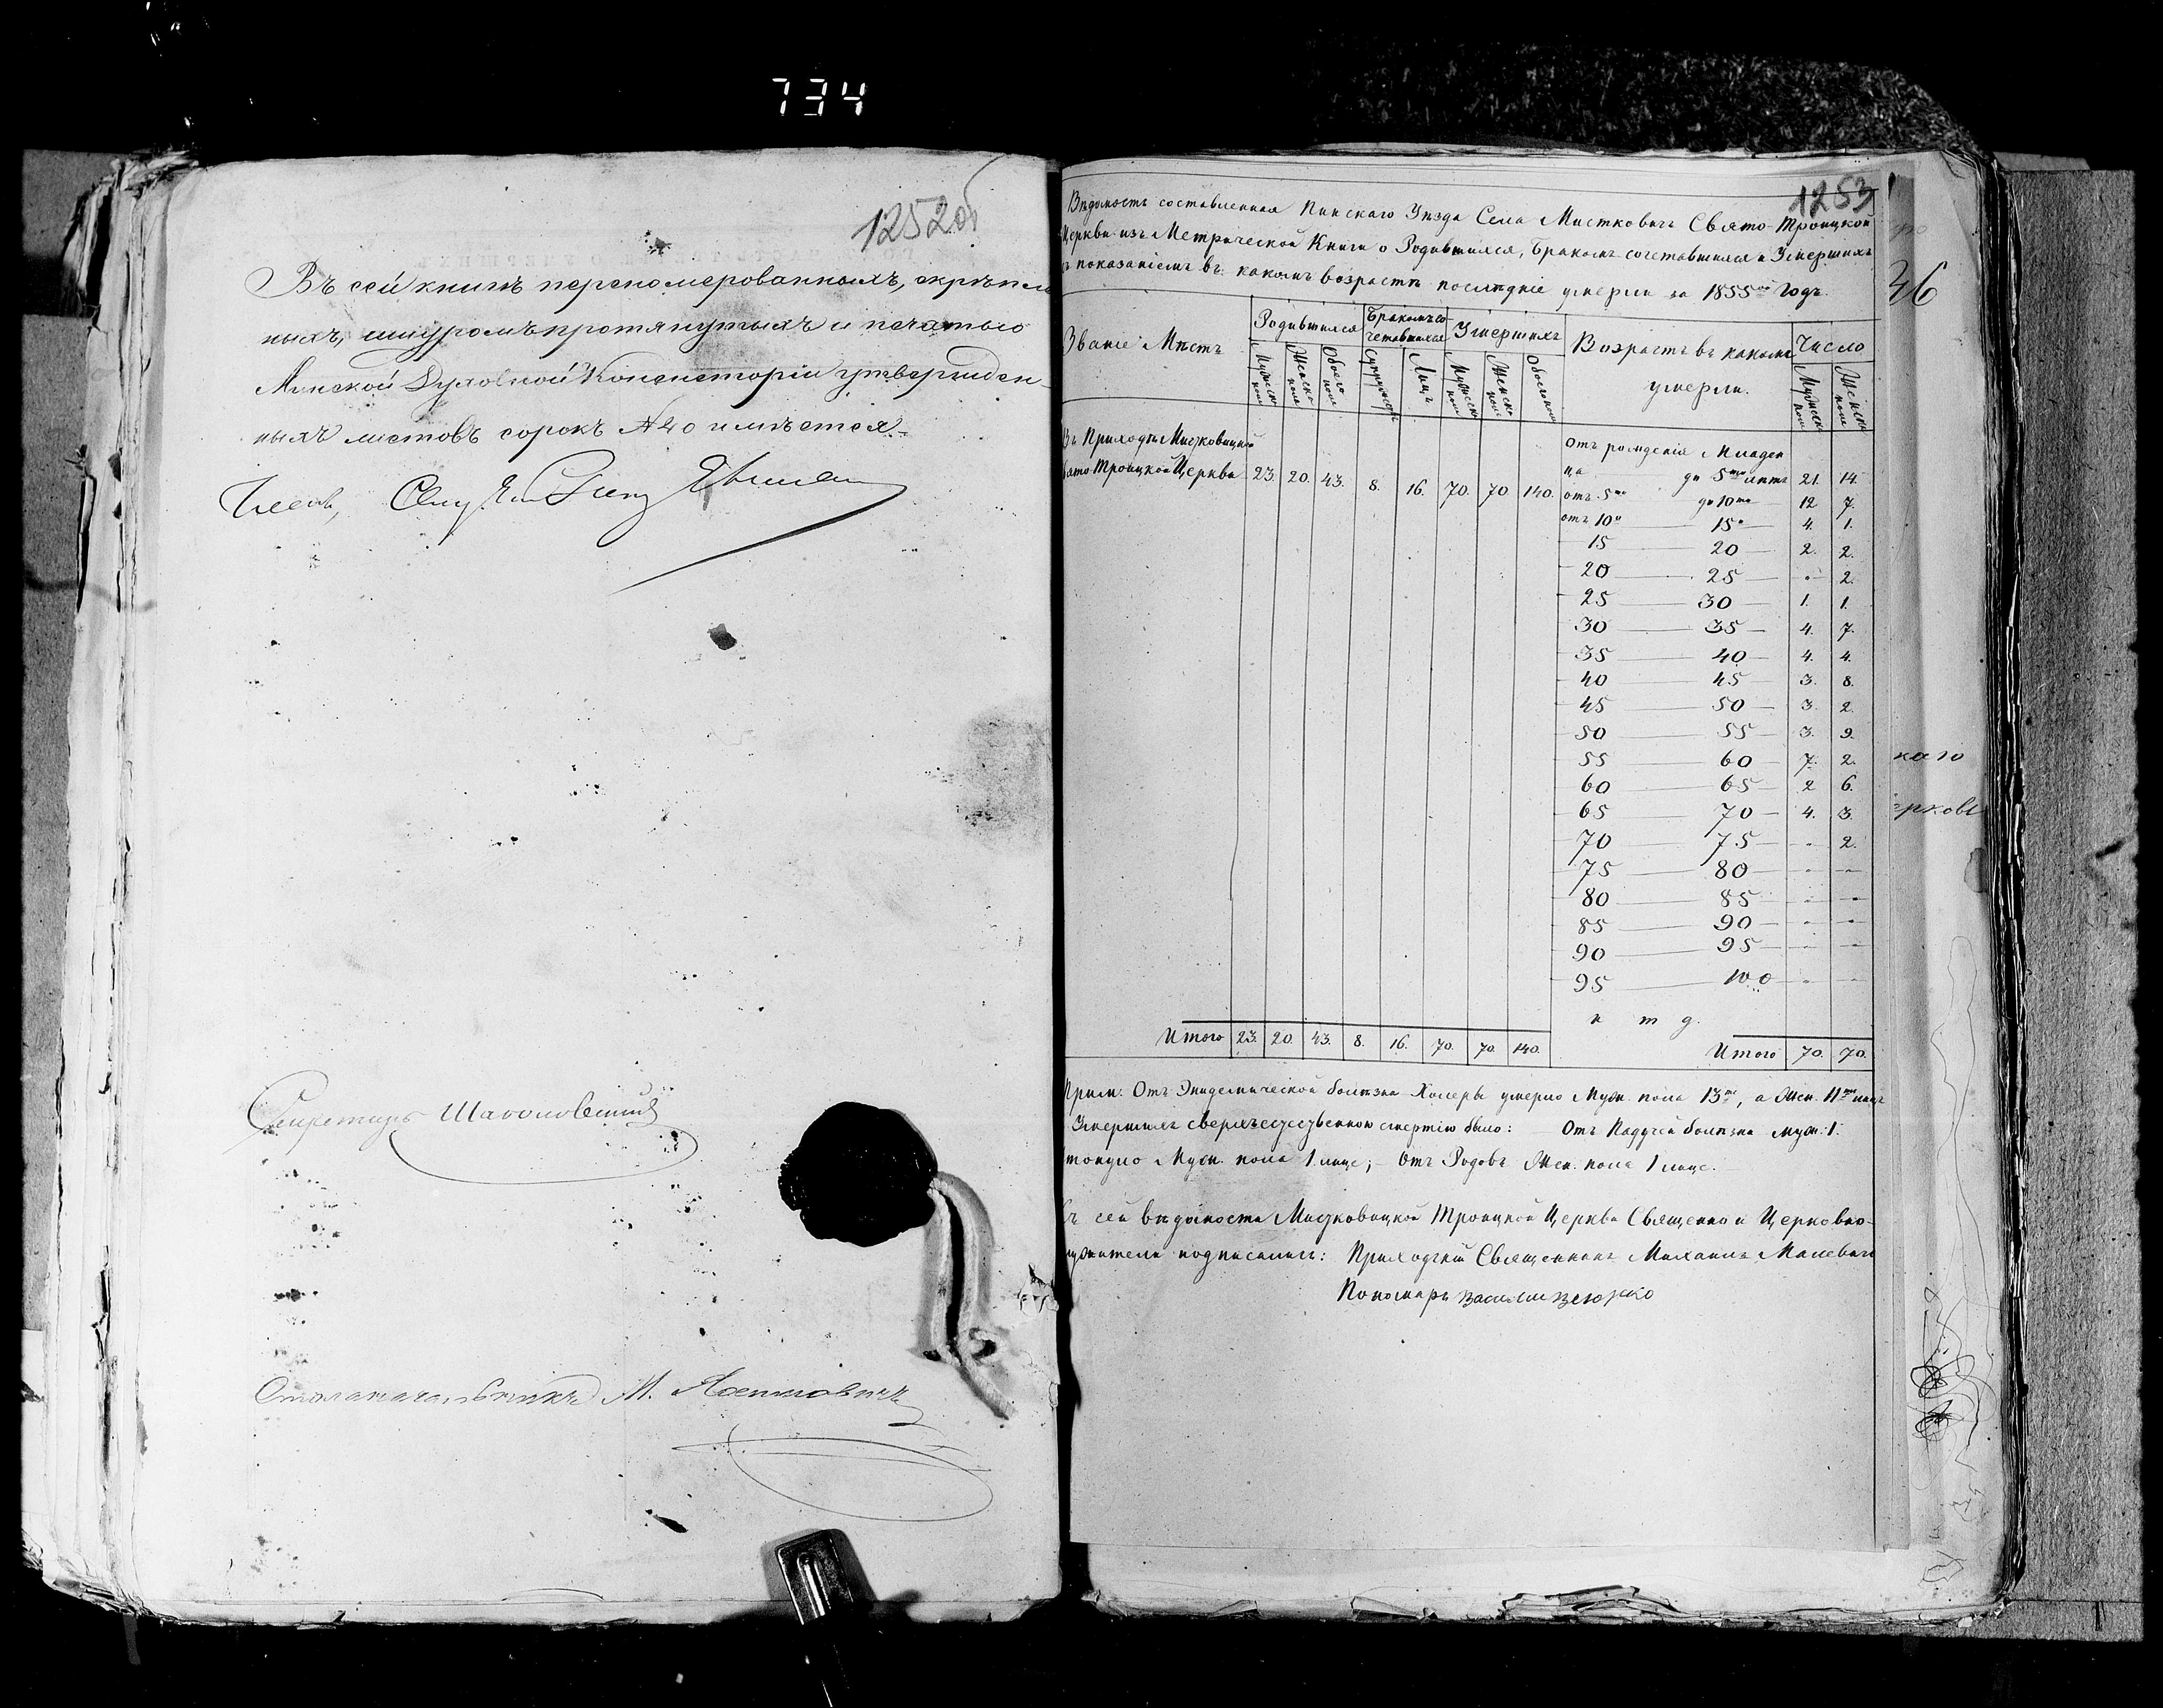 734
1252об
Въ сей книгѣ перенумерованныхъ, скрѣплен
ныхъ, шнуромъ протянутыхъ и печатью
Минской Духовной Консисторіи утвержден-
ныхъ листовъ сорокъ №40 имѣется.
Секретарь
Столоначальникъ М.
1253
Вѣдомость составленная Пинскаго Уѣзда Села Мистковичъ Свято-Троицкой
Церкви изъ Метрической Книги о Родившихся, Бракомъ сочетавшихся и Умершихъ
показаніемъ въ какомъ возрастѣ послѣдніе умерли за 1855й Годъ.
46
Званіе Мѣстъ
Родившихся
Бракомъ со-
четавшихся
Умершихъ
Возрастъ въ какомъ
умерли.
Число
Мужеска пола
Женска пола
Обоего пола
Супружествъ
Лицъ
Мужеска пола
Женска пола
Обоего пола
Мужеска пола
Женска пола
Въ Приходѣ Мистковицкой
Свято-Троицкой Церкви 23. 20. 43. 8. 16. 70. 70. 140.
Отъ рожденія Младен
ца до 5ти лѣтъ 21. 14.
отъ 5ти до 10ти 12 7.
отъ 10и 15и 4. 1.
15 20 2. 2.
20 25 - 2.
25 30 1. 1.
30 35 4. 7.
35 40 4. 4.
40 45 3. 8.
45 50 3. 2.
50 55 3. 9.
55 60 7. 2.
60 65 2 6.
65 70 4. 3.
70 75 - 2.
75 80 - -
80 85 - -
85 90 - -
90 95 - -
95 100 - -
и т д.
Итого 23. 20. 43. 8. 16. 70. 70. 140.
Итого 70. 70.
каго
ерковь
Прим: Отъ Эпидемической болѣзни Холеры умерло Муж. пола 13ть, а Жен. 11ть лицъ
Умершихъ сверхъестественною смертію было: Отъ Падучей болѣзни муж: 1.
тонуло Муж. пола 1 лице; – Отъ Родовъ Жен. пола 1 лице.
сей вѣдомости Мистковицкой Троицкой Церкви Священно и Церковно-
служители подписались: Приходскій Священникъ Михаилъ Малевичъ
Пономарь Василій